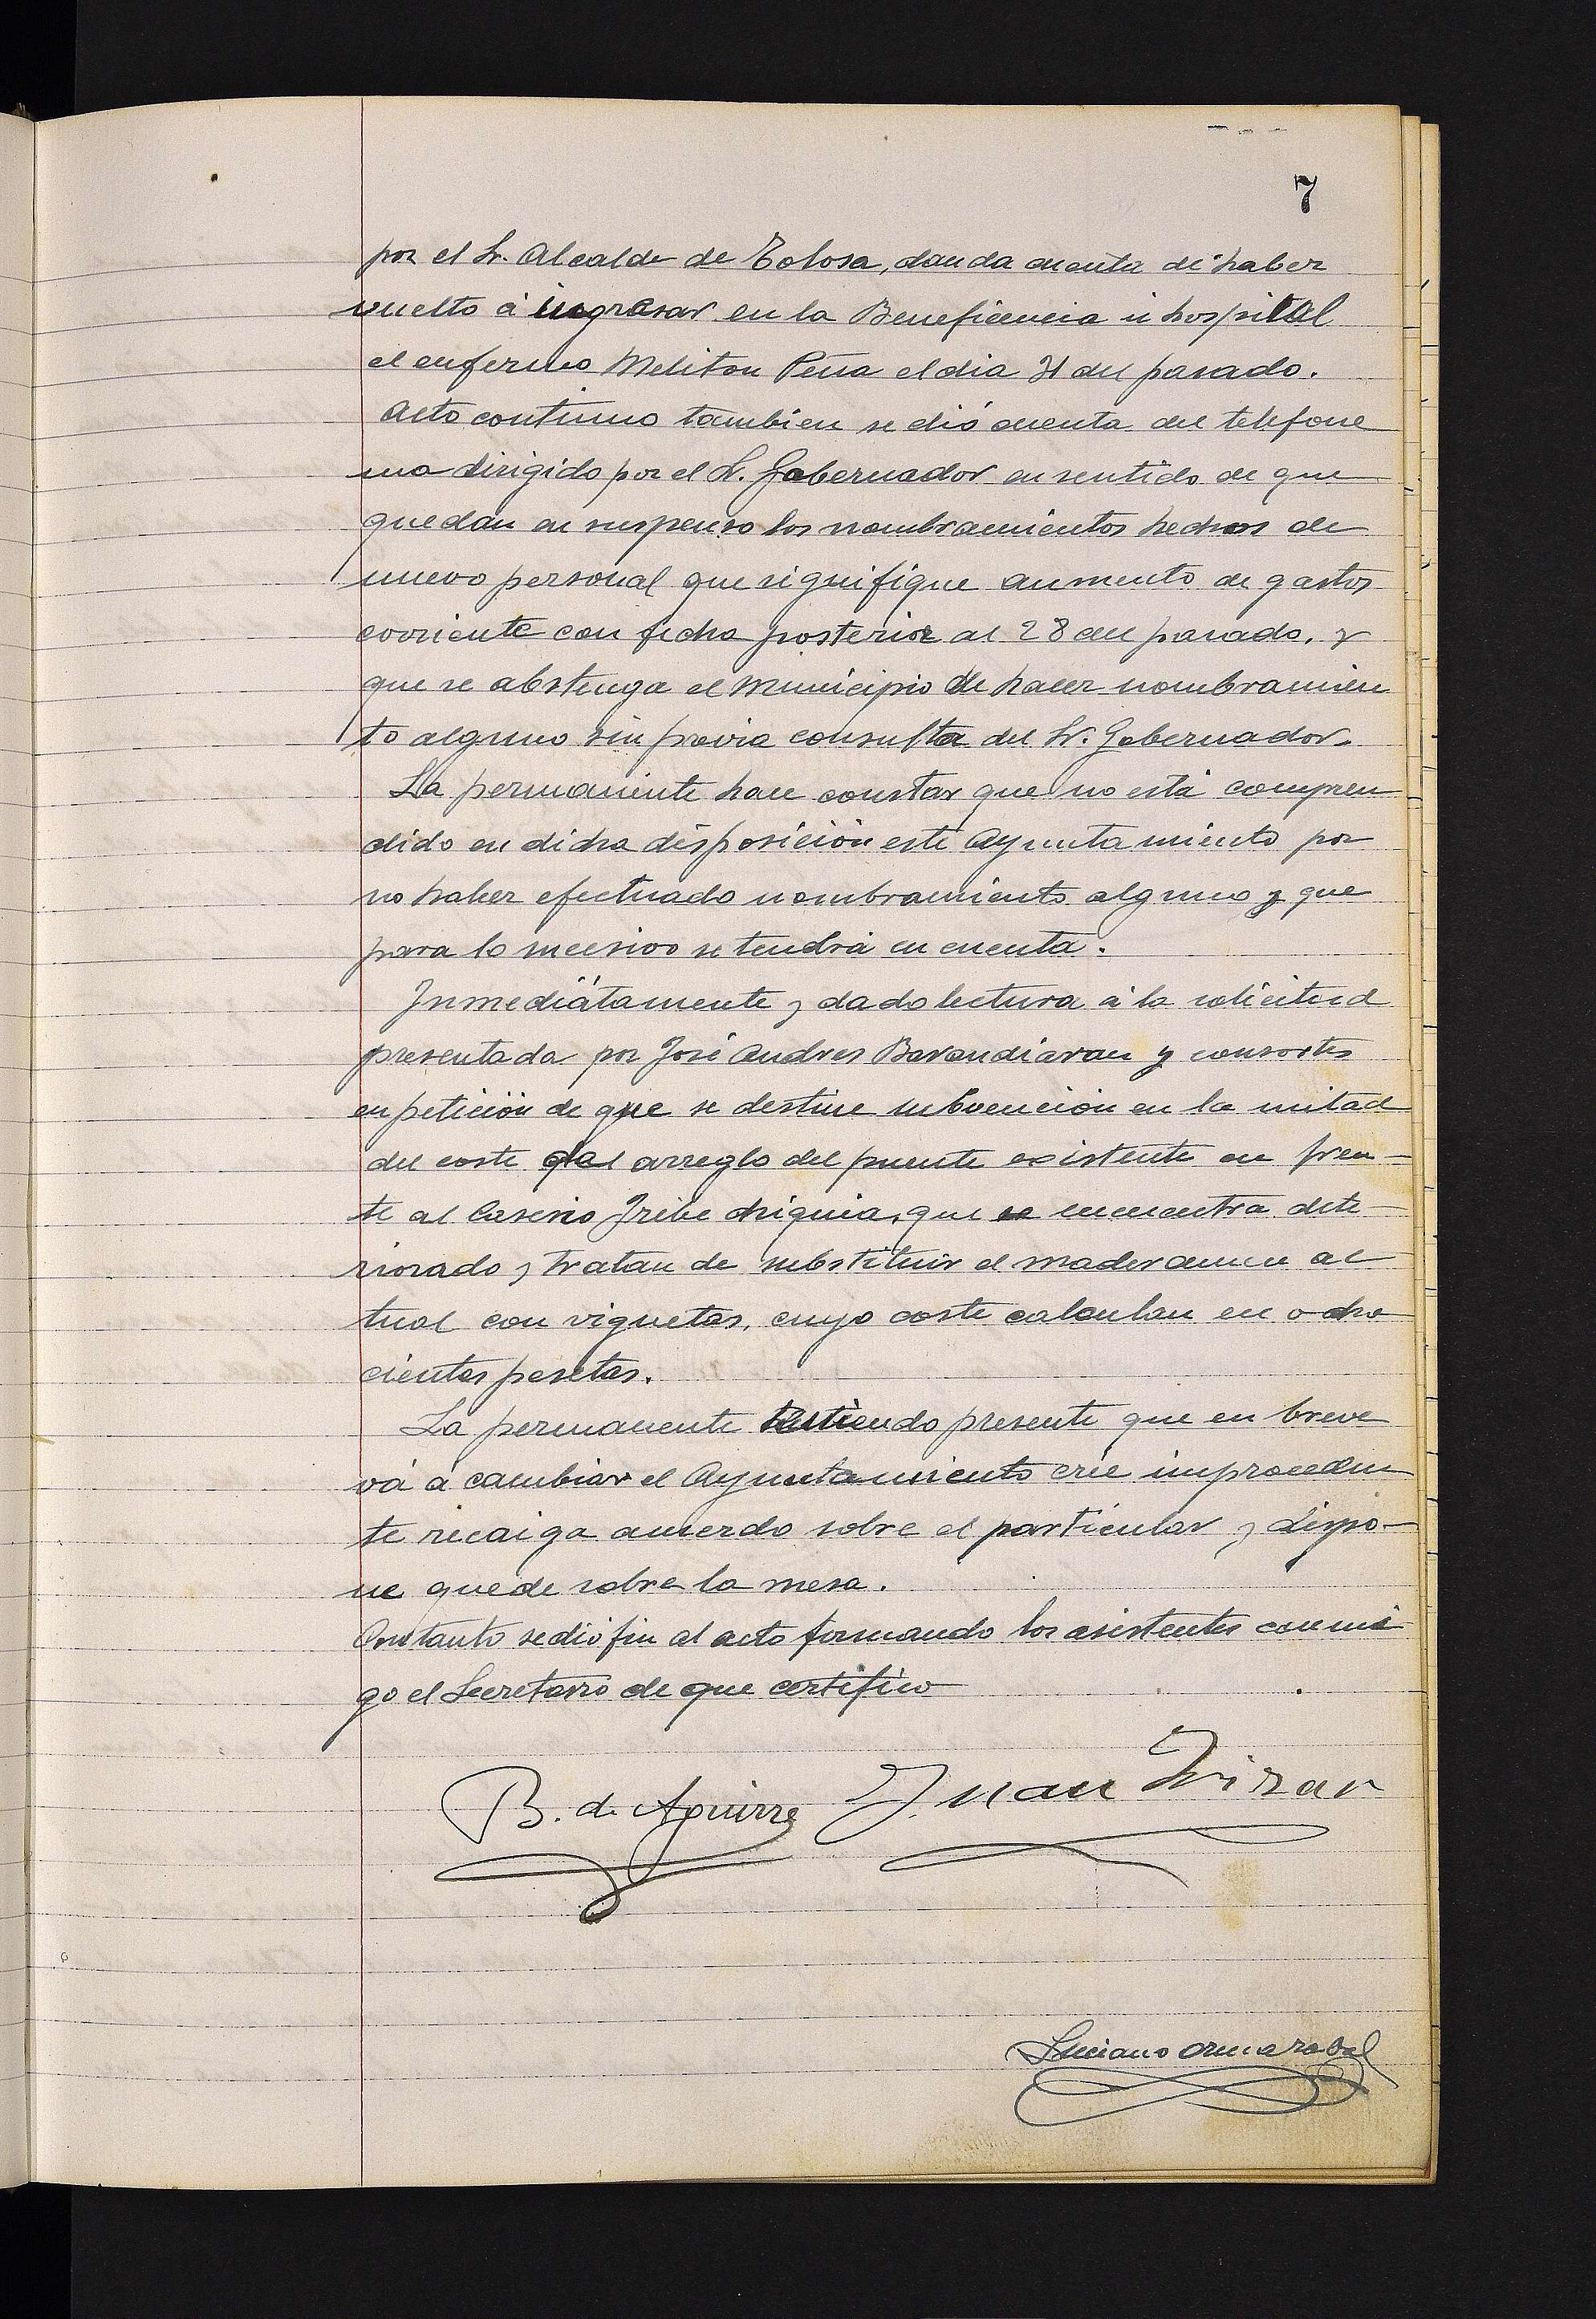 7
por el Sr. Alcalde de Tolosa, danda cuenta de haber
vuelto á ingresar en la Beneficencia ú hospital
el enfermo Meliton Peña el dia 31 del pasado.
Acto continuo tambien se dió cuenta del telefone
ma dirigido por el Sr. Gobernador en sentido de que
quedan en suspenso los nombramientos hechos de
nuevo personal que signifique aumento de gastos
corriente con fecha posterior al 28 del pasado, y
que se abstenga el Municipio de hacer nombramien
to alguno sin previa consulta del Sr. Gobernador.
La permanente hace constar que no está compren
dido en dicha disposición este Ayuntamiento por
no haber efectuado nombramiento alguno y que
para lo sucesivo se tendrá en cuenta.
Inmediátamente y dado lectura á la solicitud
presentada por José Andres Barandiaran y consortes
en petición de que se destine subvención en la mitad
del coste del arreglo del puente existente en fren-
te al Caserio Iribe chiquia, que se encuentra dete-
riorado y tratan de substituir el maderamen ac
tual con viguetas, cuyo coste calculan en ocho
cientas pesetas.
La permanente teniendo presente que en breve
vá á cambiar el Ayuntamiento crée improceden
te recaiga acuerdo sobre el particular y dispo-
ne quede sobre la mesa.
Contanto se dió fin al acto formando los asistentes conmi
go el Secretario de que certifico
B. de Aguirre Juan Irizar
Luciano Ormazabal